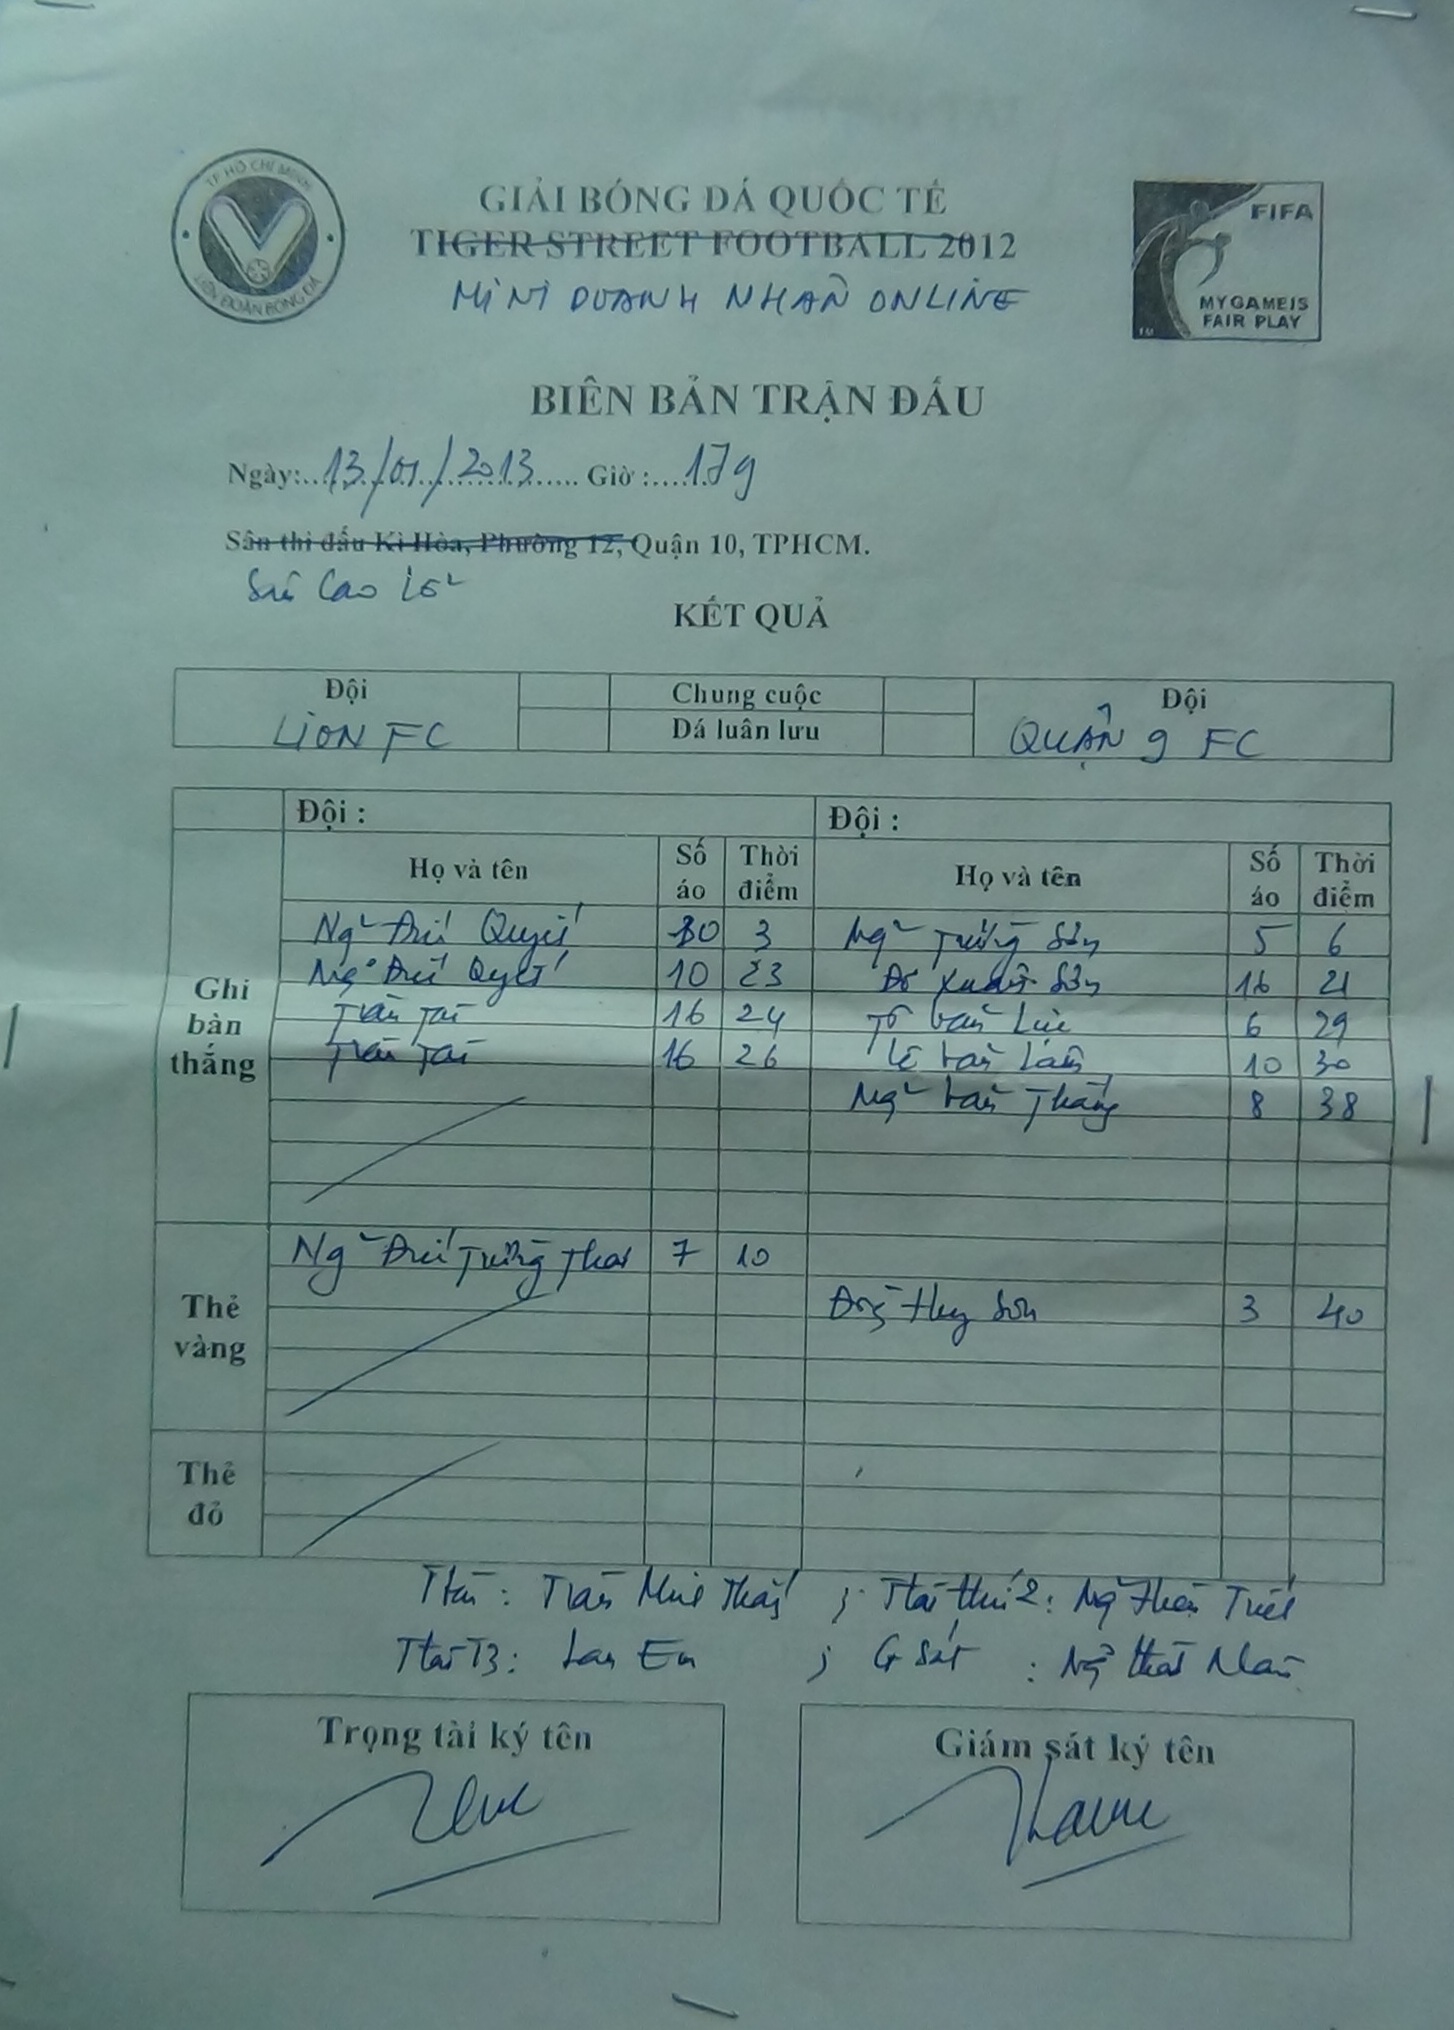 TP HỒ CHÍ MINH
LIÊN ĐOÀN BÓNG ĐÁ
GIẢI BÓNG ĐÁ QUỐC TẾ
TIGER STREET FOOTBALL 2012
MINI DOANH NHÂN ONLINE
FIFA
MY GAME IS
FAIR PLAY
BIÊN BẢN TRẬN ĐẤU
Ngày:..13/01/2013..... Giờ :....17g
Sân thi đấu Kì Hòa, Phường 12, Quận 10, TPHCM.
Cao Lỗ
KẾT QUẢ
Đội Chung cuộc Đội
LION FC Đá luân lưu QUẬN 9 FC
Đội : Đội :
Họ và tên Số áo Thời điểm Họ và tên Số áo Thời điểm
Ghi bàn thắng
Ng~ Đức Quyết 10 3 Ng~ Trường Sơn 5 6
Ng~ Đức Quyết 10 23 Đỗ Xuân Sơn 16 21
Trần Tài 16 24 Tô Văn Lực 6 29
Trần Tài 16 26 Lê Văn Lâm 10 30
Ng~ Văn Thắng 8 38
Thẻ vàng
Ng~ Đức Trường 7 10
Huy Sơn 3 40
Thẻ đỏ
Trần Minh Thắng ; thứ 2: Ng~ Triết
T3: Lan Em ; G Sát : Ng~
Trọng tài ký tên Giám sát ký tên